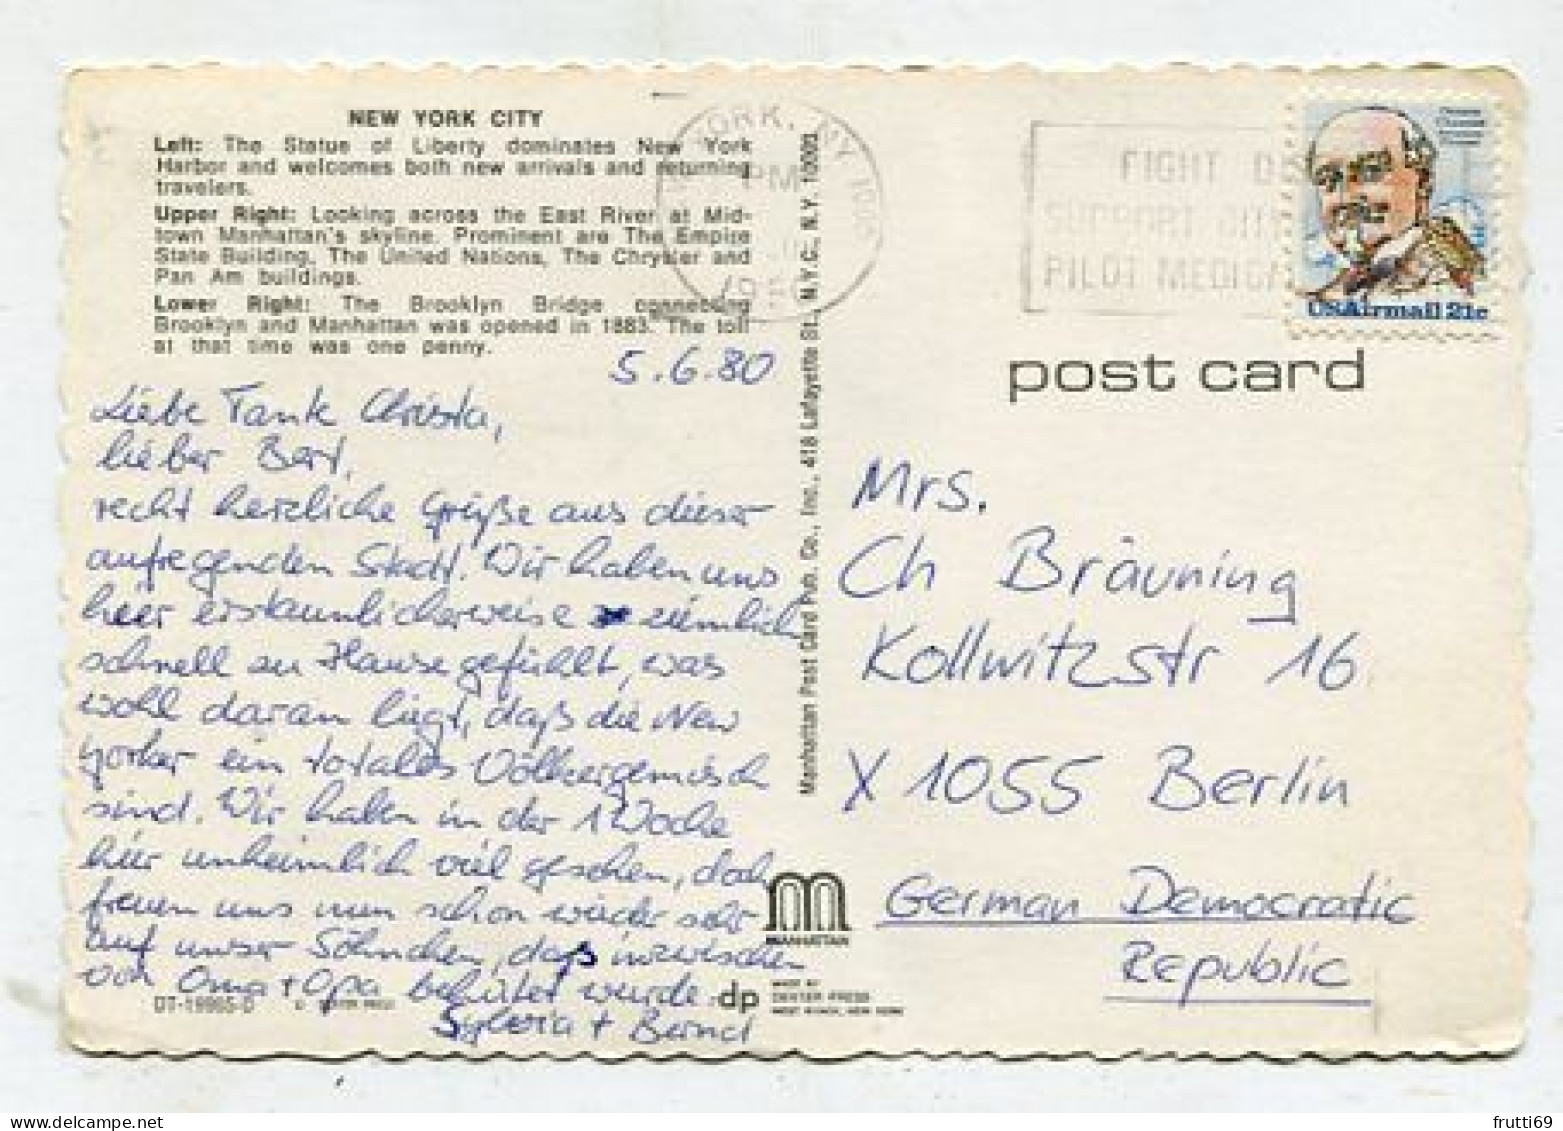 NEW YORK CITY
Left: The Statue of Liberty dominates New York
Harbor and welcomes both new arrivals and returning
travelers.
Upper Right: Looking across the East River at Mid-
town Manhattan's skyline. Prominent are The Empire
State Building, The United Nations, The Chrysler and
Pan Am buildings.
Lower Right: The Brooklyn Bridge connecting
Brooklyn and Manhattan was opened in 1883. The toll
at that time was one penny.
5.6.80
Liebe Tante Christa,
lieber Bert,
recht herzliche Grüße aus dieser
aufregenden Stadt. Wir haben uns
hier erstaunlicherweise ziemlich
schnell zu Hause gefühlt, was
wohl daran liegt, daß die New
Yorker ein totales Völkergemisch
sind. Wir haben in der 1 Woche
hier unheimlich viel gesehen, doch
freuen uns nun schon wieder sehr
auf unser Söhnchen, daß inzwischen
von Oma + Opa behütet wurde.
Sylvia + Bernd
DT-18965-D
Manhattan Post Card Pub. Co., Inc., 418 Lafayette St., N.Y.C., N.Y. 10003
MANHATTAN
dp
MADE BY
DEXTER PRESS
WEST NYACK, NEW YORK
YORK, NY 100
PM
19
FIGHT
SUPPORT
PILOT MEDICA
USAirmail 21c
post card
Mrs.
Ch Bräuning
Kollwitzstr 16
X 1055 Berlin
German Democratic
Republic
frutti69